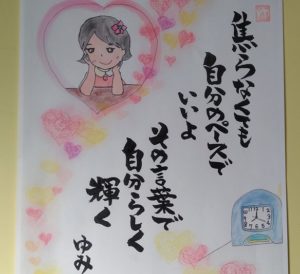 焦らなくても
自分のペースで
いいよ
その言葉で
自分らしく
輝く
ゆみ